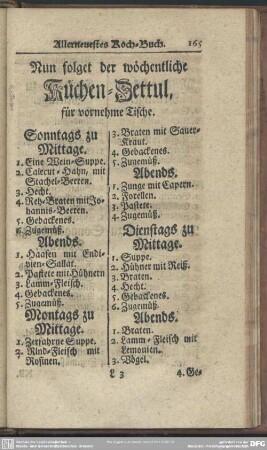 Allerneuestes Koch-Buch. 165
Nun folget der wöchentliche
Küchen-Zettul,
für vornehme Tische.
Sonntags zu
Mittage.
1. Eine Wein-Suppe.
2. Calecut-Hahn, mit
Stachel-Beeren.
3. Hecht.
4. Reh-Braten mit Jo-
hannis-Beeren.
5. Gebackenes.
6. Zugemüß.
Abends.
1. Haasen mit Endi-
vien-Sallat.
2. Pastete mit Hühnern
3. Lamm-Fleisch.
4. Gebackenes.
5. Zugemüß.
Montags zu
Mittage.
1. Zerfahrne Suppe.
2. Rind-Fleisch mit
Rosinen.
3. Braten mit Sauer-
Kraut.
4. Gebackenes.
5. Zugemüß.
Abends.
1. Zunge mit Capern.
2. Forellen.
3. Pastete.
4. Zugemüß.
Dienstags zu
Mittage.
1. Suppe.
2. Hühner mit Reiß.
3. Braten.
4. Hecht.
5. Gebackenes.
6. Zugemüß.
Abends.
1. Braten.
2. Lamm-Fleisch mit
Lemonien.
3. Vögel.
L 3 4. Ge-
DFG